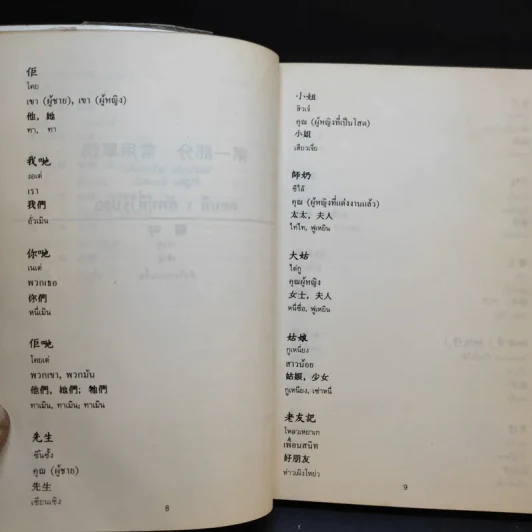 佢
โคย
เขา (ผู้ชาย), เขา (ผู้หญิง)
他, 她
ทา, ทา
我哋
งอเต่
เรา
我們
อั้วเมิน
你哋
เนเต่
พวกเธอ
你們
หนี่เมิน
佢哋
โคยเต่
พวกเขา, พวกมัน
他們, 她們; 牠們
ทาเมิน, ทาเมิน; ทาเมิน
先生
ซินซั้ง
คุณ (ผู้ชาย)
先生
เซียนเซิง
8
小姐
ซิวเจ๋
คุณ (ผู้หญิงที่เป็นโสด)
小姐
เสียวเจี่ย
師奶
ซีไล้
คุณ (ผู้หญิงที่แต่งงานแล้ว)
太太, 夫人
ไท่ไท, ฟูเหยิน
大姑
ไต่กู
คุณผู้หญิง
女士, 夫人
หนี่ซื่อ, ฟูเหยิน
姑娘
กูเหนียง
สาวน้อย
姑娘, 少女
กูเหนียง, เซ่าหนี่
老友記
โหลวเหยาเก
เพื่อนสนิท
好朋友
ห่าวเผิงโหย่ว
9